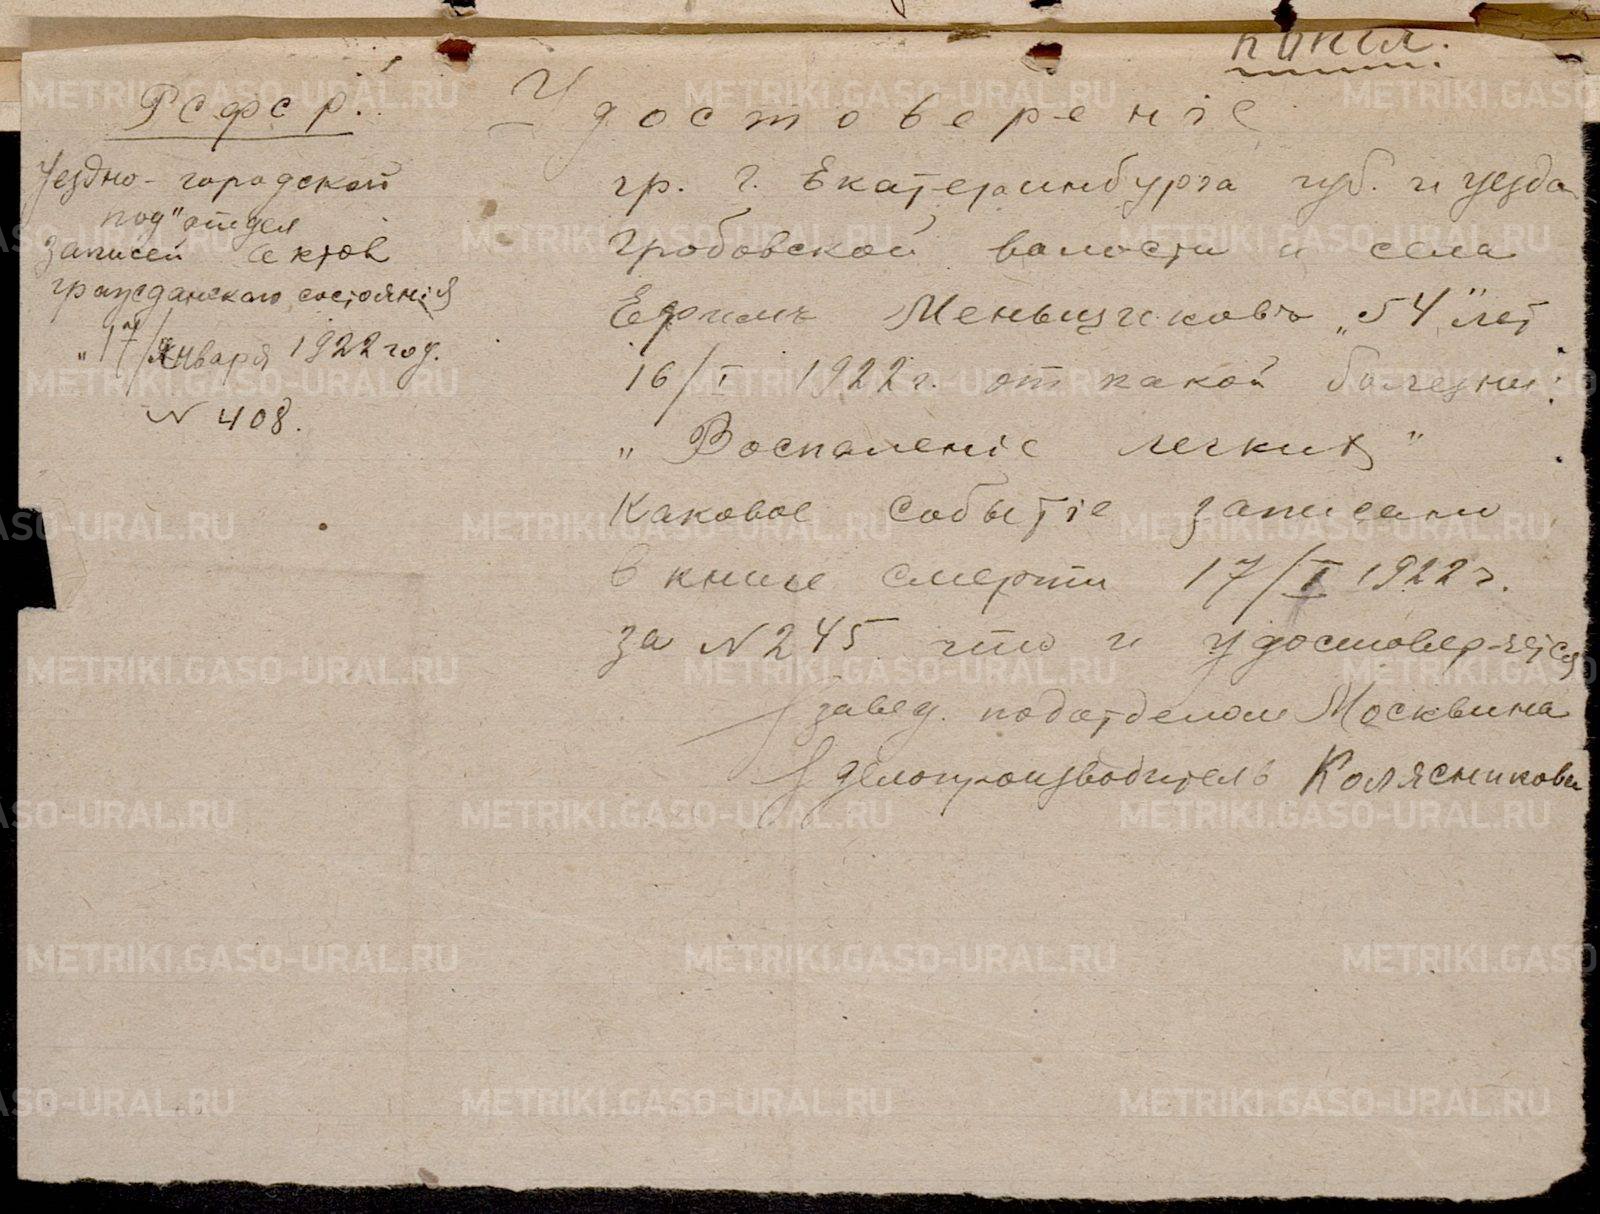 копия.
Р С Ф С Р.
Уездно-городской
под"отдел
записей актов
гражданского состоянія
"17/января 1922 год.
N 408.
Удостоверение
гр. г. Екатеринбурга губ. и уезда
Гробовской волости и села
Ефимъ Меньщиковъ „54" лет
16/I 1922 г. от какой болезни:
„Воспаленіе легких"
Каковое событіе записано
в книге смерти 17/I 1922 г.
за N 245 что и удостоверяется
завед. подотделом Москвина
делопроизводитель Колясникова
METRIKI.GASO-URAL.RU